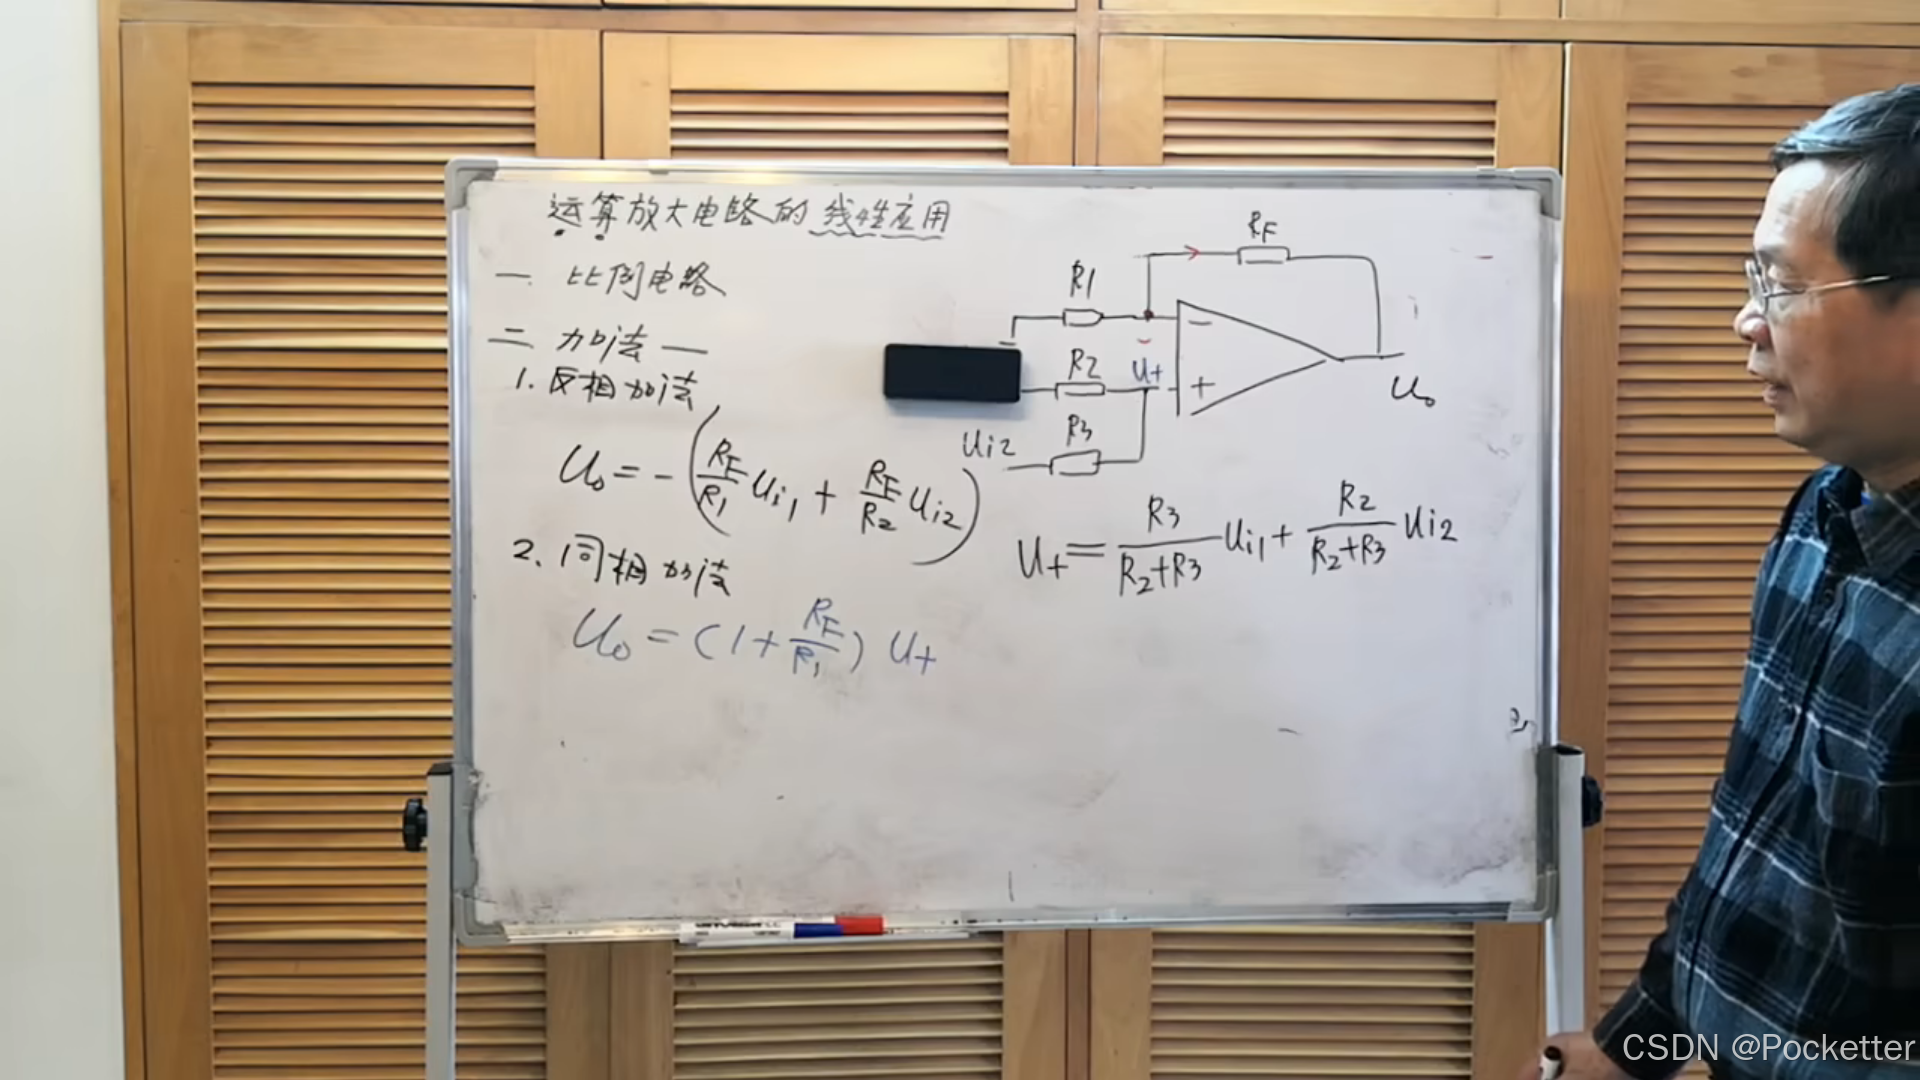 运算放大电路的线性应用
一. 比例电路
二 加法 —
1. 反相加法
U₀ = - (RF/R1 Ui1 + RF/R2 Ui2)
2. 同相加法
U₀ = (1 + RF/R1) U+
RF
R1
R2
U+
R3
Ui2
−
+
U₀
U+ = R3/(R2+R3) Ui1 + R2/(R2+R3) Ui2
CSDN @Pocketter